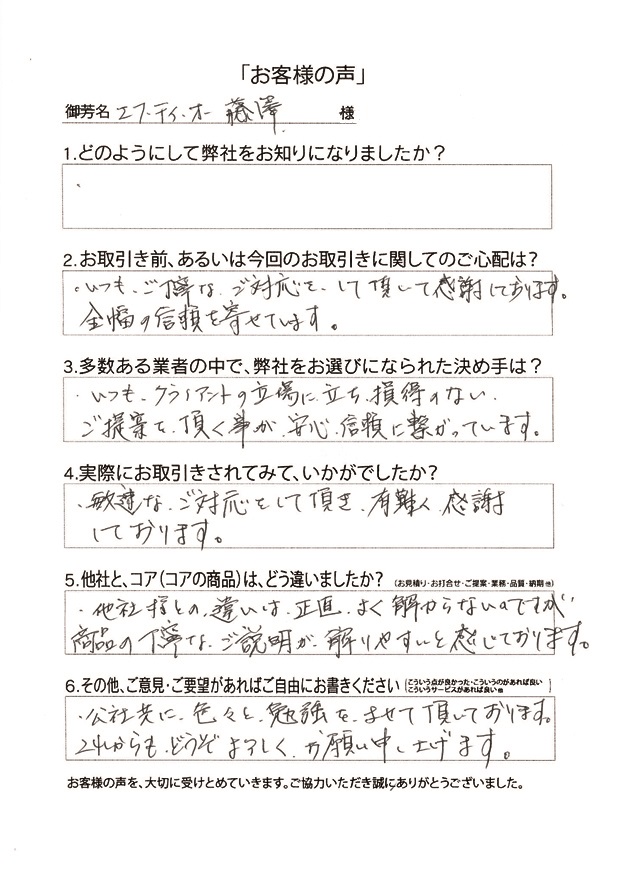 「お客様の声」
御芳名 エフ・ティ・オー 藤澤 様
1.どのようにして弊社をお知りになりましたか?
2.お取引き前、あるいは今回のお取引きに関してのご心配は?
・いつも、ご丁寧な、ご対応を、して頂して感謝しております。
全幅の信頼を寄せています。
3.多数ある業者の中で、弊社をお選びになられた決め手は?
・いつも、クライアントの立場に立ち、損得のない、
ご提案を、頂く事が、安心、信頼に繋がっています。
4.実際にお取引きされてみて、いかがでしたか?
・敏速な、ご対応をして頂き、有難く、感謝
しております。
5.他社と、コア(コアの商品)は、どう違いましたか? (お見積り・お打合せ・ご提案・業務・品質・納期 他)
・他社様との、違いは、正直、よく解からないのですが
商品の丁寧な、ご説明が、解りやすいと感じております。
6.その他、ご意見・ご要望があればご自由にお書きください (こういう点が良かった・こういうのがあれば良い
こういうサービスがあれば良い 他)
・公社共に、色々と、勉強を、させて頂しております。
これからも、どうぞ よろしく、お願い申し上げます。
お客様の声を、大切に受けとめていきます。ご協力いただき誠にありがとうございました。